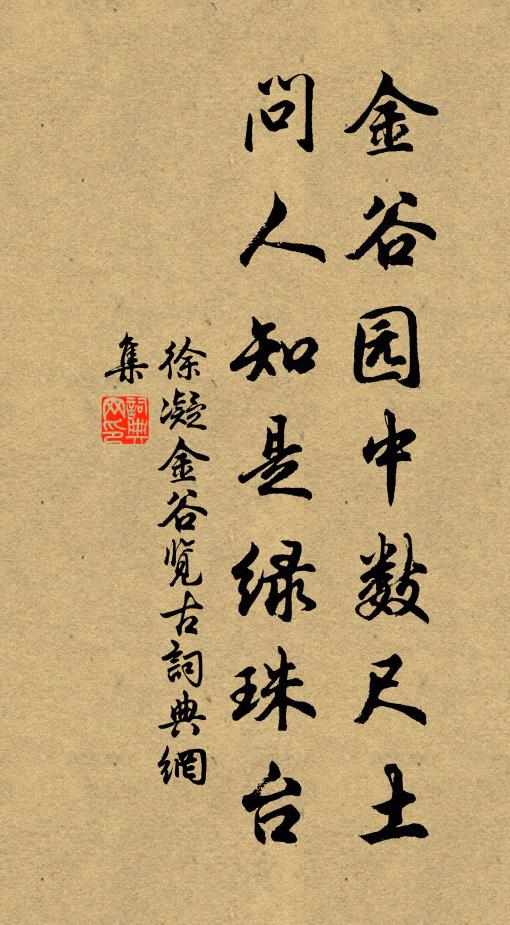 金谷园中数尺土
问人知是绿珠台
徐凝金谷览古詞典網
集
詞典
网印